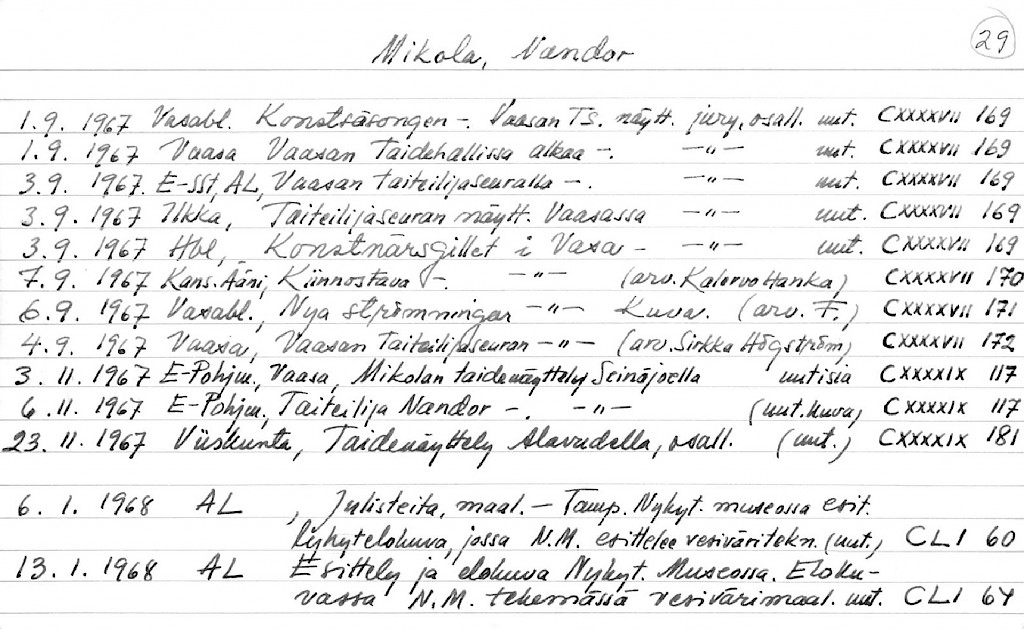 29
Mikola, Nandor
1.9. 1967 Vasabl. Konstsäsongen -. Vaasan TS. näytt. jury, osall. uut. CXXXXVII 169
1.9. 1967 Vaasa Vaasan Taidehallissa alkaa -. -"- uut. CXXXXVII 169
3.9. 1967. E-SSt, AL, Vaasan taiteilijaseuralla -. -"- uut. CXXXXVII 169
3.9. 1967 Ilkka, Taiteilijaseuran näytt. Vaasassa -"- uut. CXXXXVII 169
3.9. 1967 Hbl, Konstnärsgillet i Vasa - -"- uut. CXXXXVII 169
7.9. 1967 Kans. Ääni, Kiinnostava -. -"- (arv. Kalervo Hanka) CXXXXVII 170
6.9. 1967 Vasabl., Nya strömningar -"- Kuva. (arv. F.) CXXXXVII 171
4.9. 1967 Vaasa, Vaasan Taiteilijaseuran -"- (arv. Sirkka Högström) CXXXXVII 172
3.11. 1967 E-Pohjm., Vaasa, Mikolan taidenäyttely Seinäjoella uutisia CXXXXIX 117
6.11. 1967 E-Pohjm, Taiteilija Nandor -. -"- (uut. kuva) CXXXXIX 117
23.11. 1967 Viiskunta, Taidenäyttely Alavudella, osall. (uut.) CXXXXIX 181
6.1. 1968 AL , Julisteita, maal. - Tamp. Nykyt. museossa esit.
lyhytelokuva, jossa N.M. esittelee vesiväritekn. (uut.) CLI 60
13.1. 1968 AL Esittely ja elokuva Nykyt. Museossa. Eloku-
vassa N.M. tekemässä vesivärimaal. uut. CLI 64